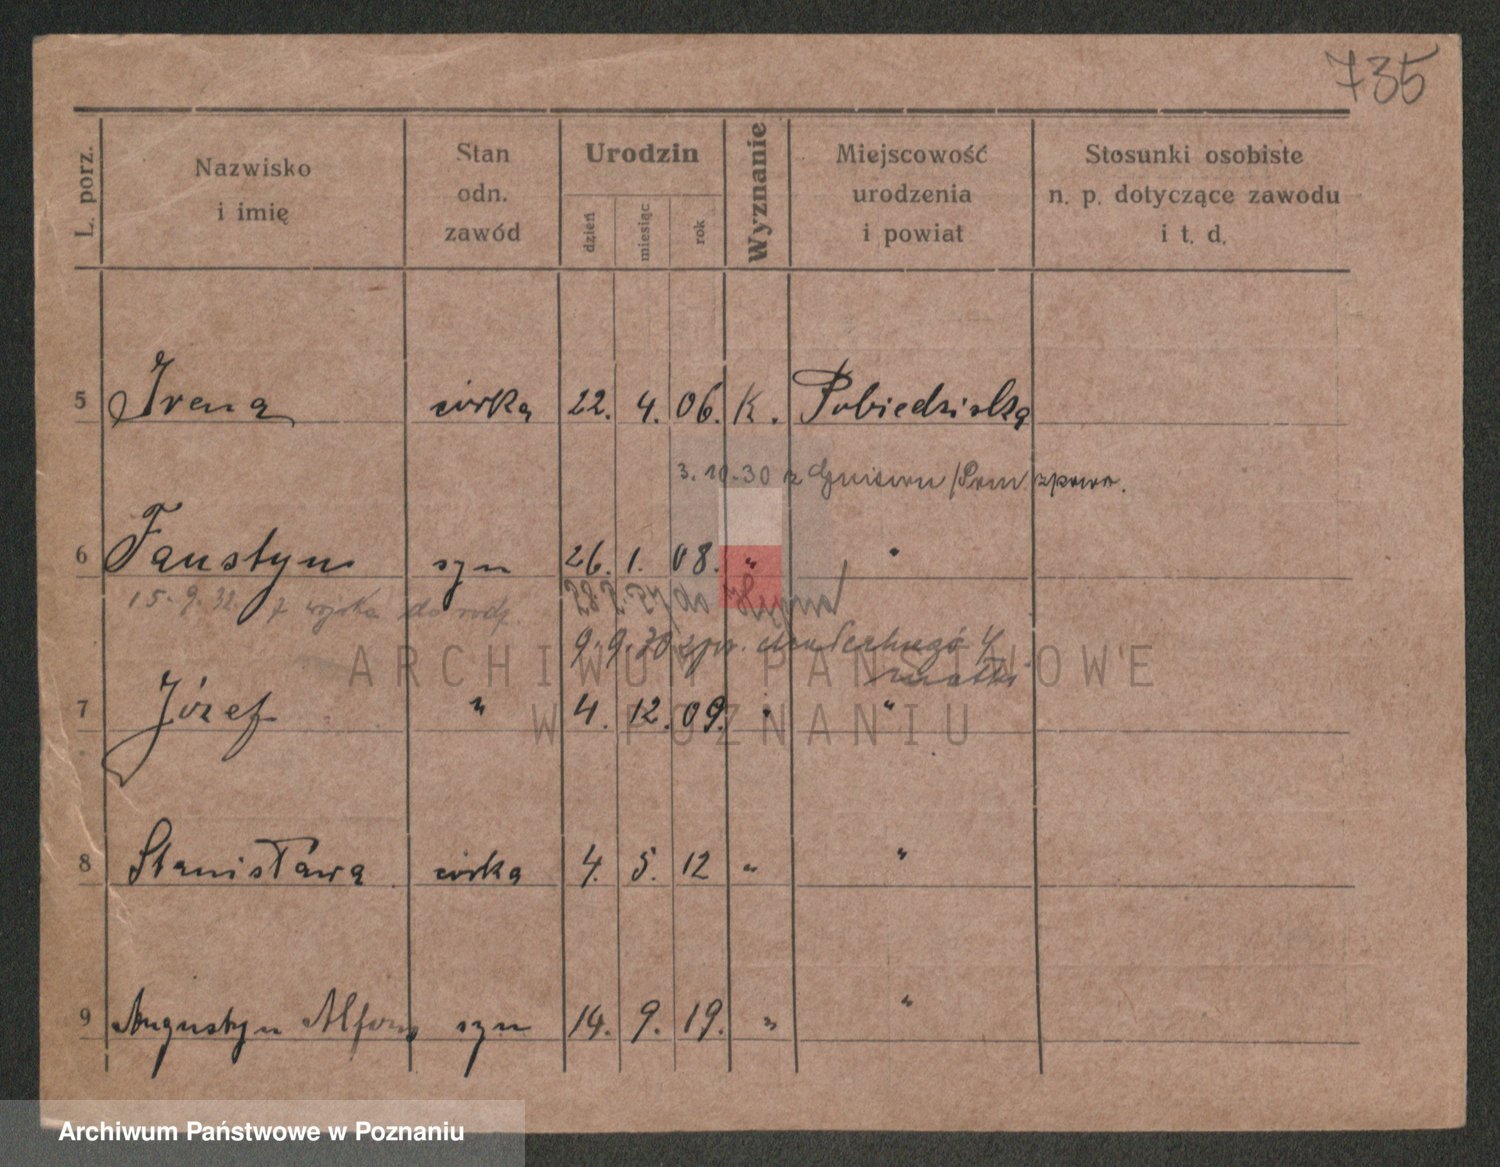 735
L. porz.
Nazwisko
i imię
Stan
odn.
zawód
Urodzin
dzień
miesiąc
rok
Wyznanie
Miejscowość
urodzenia
i powiat
Stosunki osobiste
n. p. dotyczące zawodu
i t. d.
5 Irena córka 22. 4. 06. K. Pobiedziska
3. 10. 30 z
6 Faustyn syn 26. 1. 08. " "
15. 9. 32. z wojska do rodz.
9. 9. 30
matki
7 Józef " 4. 12. 09. " "
8 Stanisława córka 4. 5. 12 " "
9 Augustyn Alfons syn 14. 9. 19. " "
ARCHIWUM PAŃSTWOWE
W POZNANIU
Archiwum Państwowe w Poznaniu